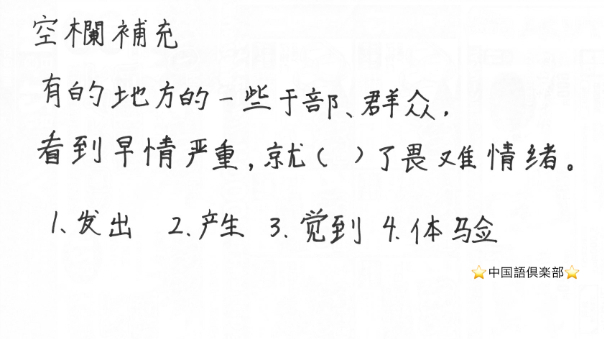 空欄補充
有的地方的一些于部、群众,
看到旱情严重,就( )了畏难情绪。
1、发出 2.产生 3.觉到 4.体验
⭐中国語倶楽部⭐